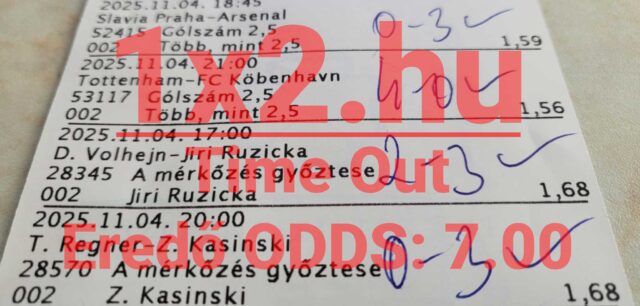 2025.11.04. 18:45
Slavia Praha-Arsenal
52415 Gólszám 2,5 0-3 ✓
002 Több, mint 2,5 1,59
2025.11.04. 21:00
Tottenham-FC Köbenhavn
53117 Gólszám 2,5 4-0 ✓
002 Több, mint 2,5 1,56
1x2.hu
2025.11.04. 17:00
D. Volhejn-Jiri Ruzicka
28345 A mérkőzés győztese 2-3 ✓
002 Jiri Ruzicka 1,68
Time Out
2025.11.04. 20:00
T. Regner-Z. Kasinski
28570 A mérkőzés győztese 0-3 ✓
002 Z. Kasinski 1,68
Eredő ODDS: 7.00